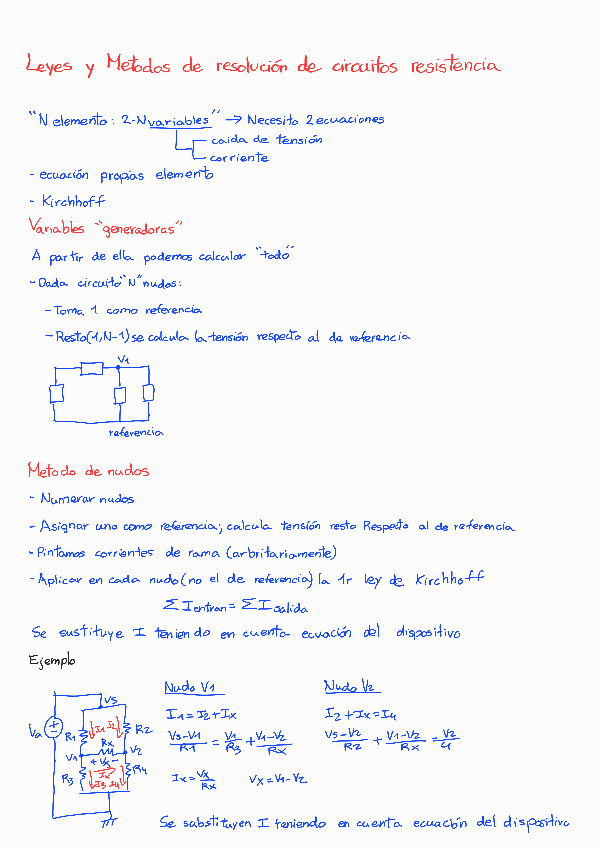 Leyes y Metodos de resolución de circuitos resistencia
"N elemento: 2-N variables" → Necesito 2 ecuaciones
caida de tensión
corriente
- ecuación propias elemento
- Kirchhoff
Variables "generadoras"
A partir de ella podemos calcular "todo"
- Dada circuito "N" nudos:
- Toma 1 como referencia
- Resto (1,N-1) se calcula la tensión respecto al de referencia
V1
referencia
Metodo de nudos
- Numerar nudos
- Asignar uno como referencia; calcula tensión resto Respecto al de referencia
- Pintamos corrientes de rama (arbritariamente)
- Aplicar en cada nudo (no el de referencia) la 1r ley de Kirchhoff
ΣI entran = ΣI salida
Se sustituye I teniendo en cuenta ecuación del dispositivo
Ejemplo
Nudo V1
Nudo V2
I1 = I2 + Ix
I2 + Ix = I4
Vs-V1/R1 = V1/R3 + V1-V2/Rx
Vs-V2/R2 + V1-V2/Rx = V2/4
Ix = Vx/Rx
Vx = V1-V2
Vs
Va
R1
I1
I2
R2
Rx
V1
+ Vx -
V2
R3
Ix
I3
I4
R4
Se substituyen I teniendo en cuenta ecuación del dispositivo